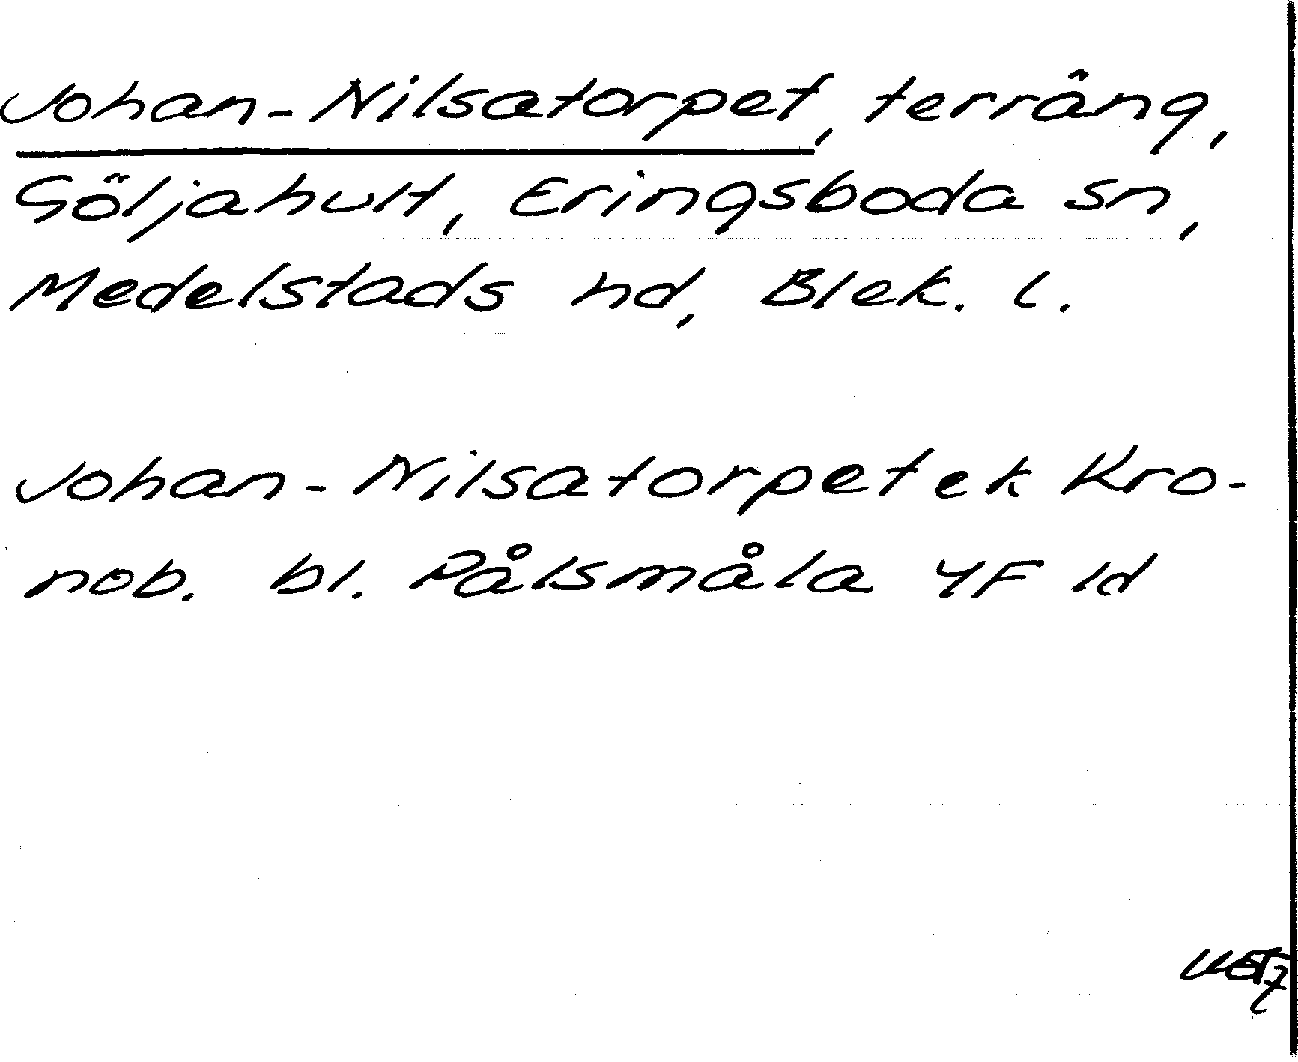 Johan-Nilsatorpet, terräng,
Göljahult, Eringsboda sn,
Medelstads hd, Blek. l.
Johan-Nilsatorpet ek Kro-
nob. bl. Pålsmåla 4F 1d